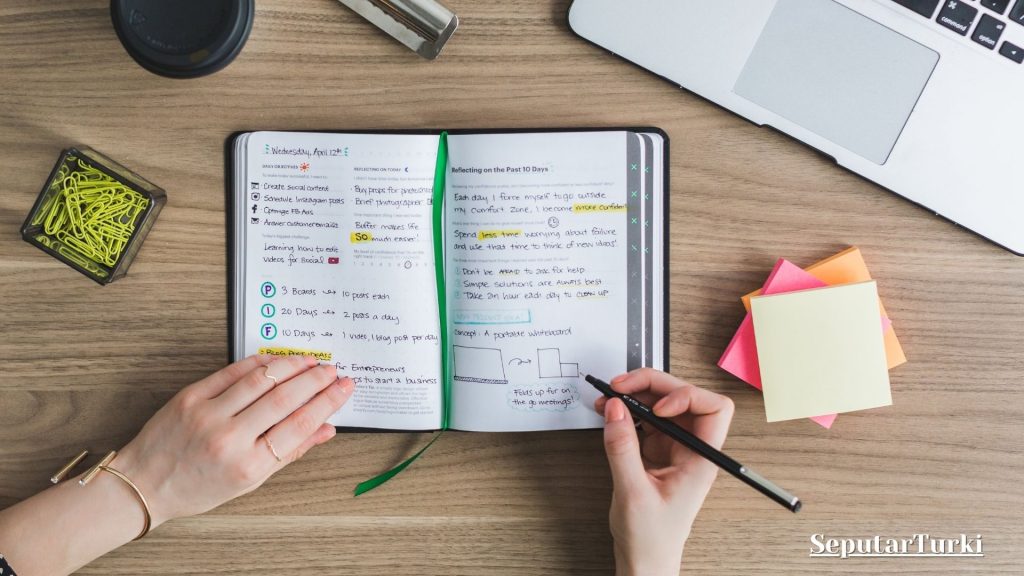 Wednesday, April 12th
DAILY OBJECTIVES
Create social content
Schedule Instagram posts
Optimize FB Ads
Answer customer emails
Today's biggest challenge
Learning how to edit
videos for social
P 3 Boards → 10 posts each
I 20 Days → 2 posts a day
F 10 Days → 1 video, 1 blog post per day
BLOG POST IDEAS:
for Entrepreneurs
to start a business
REFLECTING ON TODAY
Buy props for photoshoot
Brief photographer
Buffer makes life
SO much easier!
Reflecting on the Past 10 Days
Each day I force myself to go outside
my comfort zone, I become more confident
Spend less time worrying about failure
and use that time to think of new ideas!
1 Don't be AFRAID to ask for help
2 Simple solutions are ALWAYS best
3 Take an hour each day to CLEAN UP
NEW PRODUCT IDEA!
Concept: A portable whiteboard
Folds up for on
the go meetings!
command
option
SeputarTurki